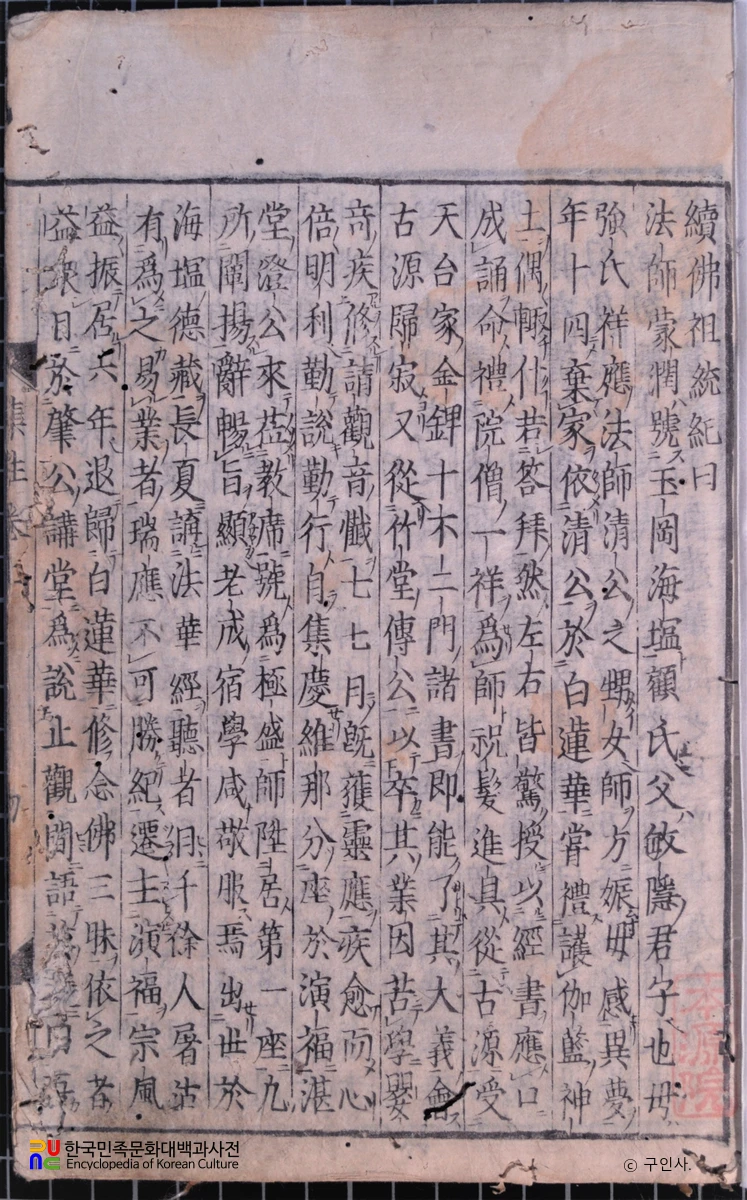 續佛祖統紀曰
法師蒙潤號玉岡海塩顧氏父敏隱君子也母
強氏祥應法師清公之甥女師方娠母感異夢
年十四棄家依清公於白蓮華嘗禮護伽藍神
土偶輙仆若答拜然左右皆驚授以經書應口
成誦命禮院僧一祥爲師祝髮進具從古源受
天台家金錍十不二門諸書即能了其大義會
古源歸寂又從竹堂傳公以卒其業因苦學嬰
竒疾修請觀音懺七七日旣獲靈應疾愈而心
倍明利勤說勤行自集慶維那分座於演福湛
堂澄公來莅教席號爲極盛師陞居第一座九
所闡揚辭暢旨顯老成宿學咸敬服焉出世於
海塩德藏長夏講法華經聽者日千徐人屠沽
有爲之易業者瑞應不可勝紀遷主演福宗風
益振居六年退歸白蓮華修念佛三昧依之者
益衆日於肇公講堂爲說止觀間語
集住
한국민족문화대백과사전
Encyclopedia of Korean Culture
ⓒ 구인사.